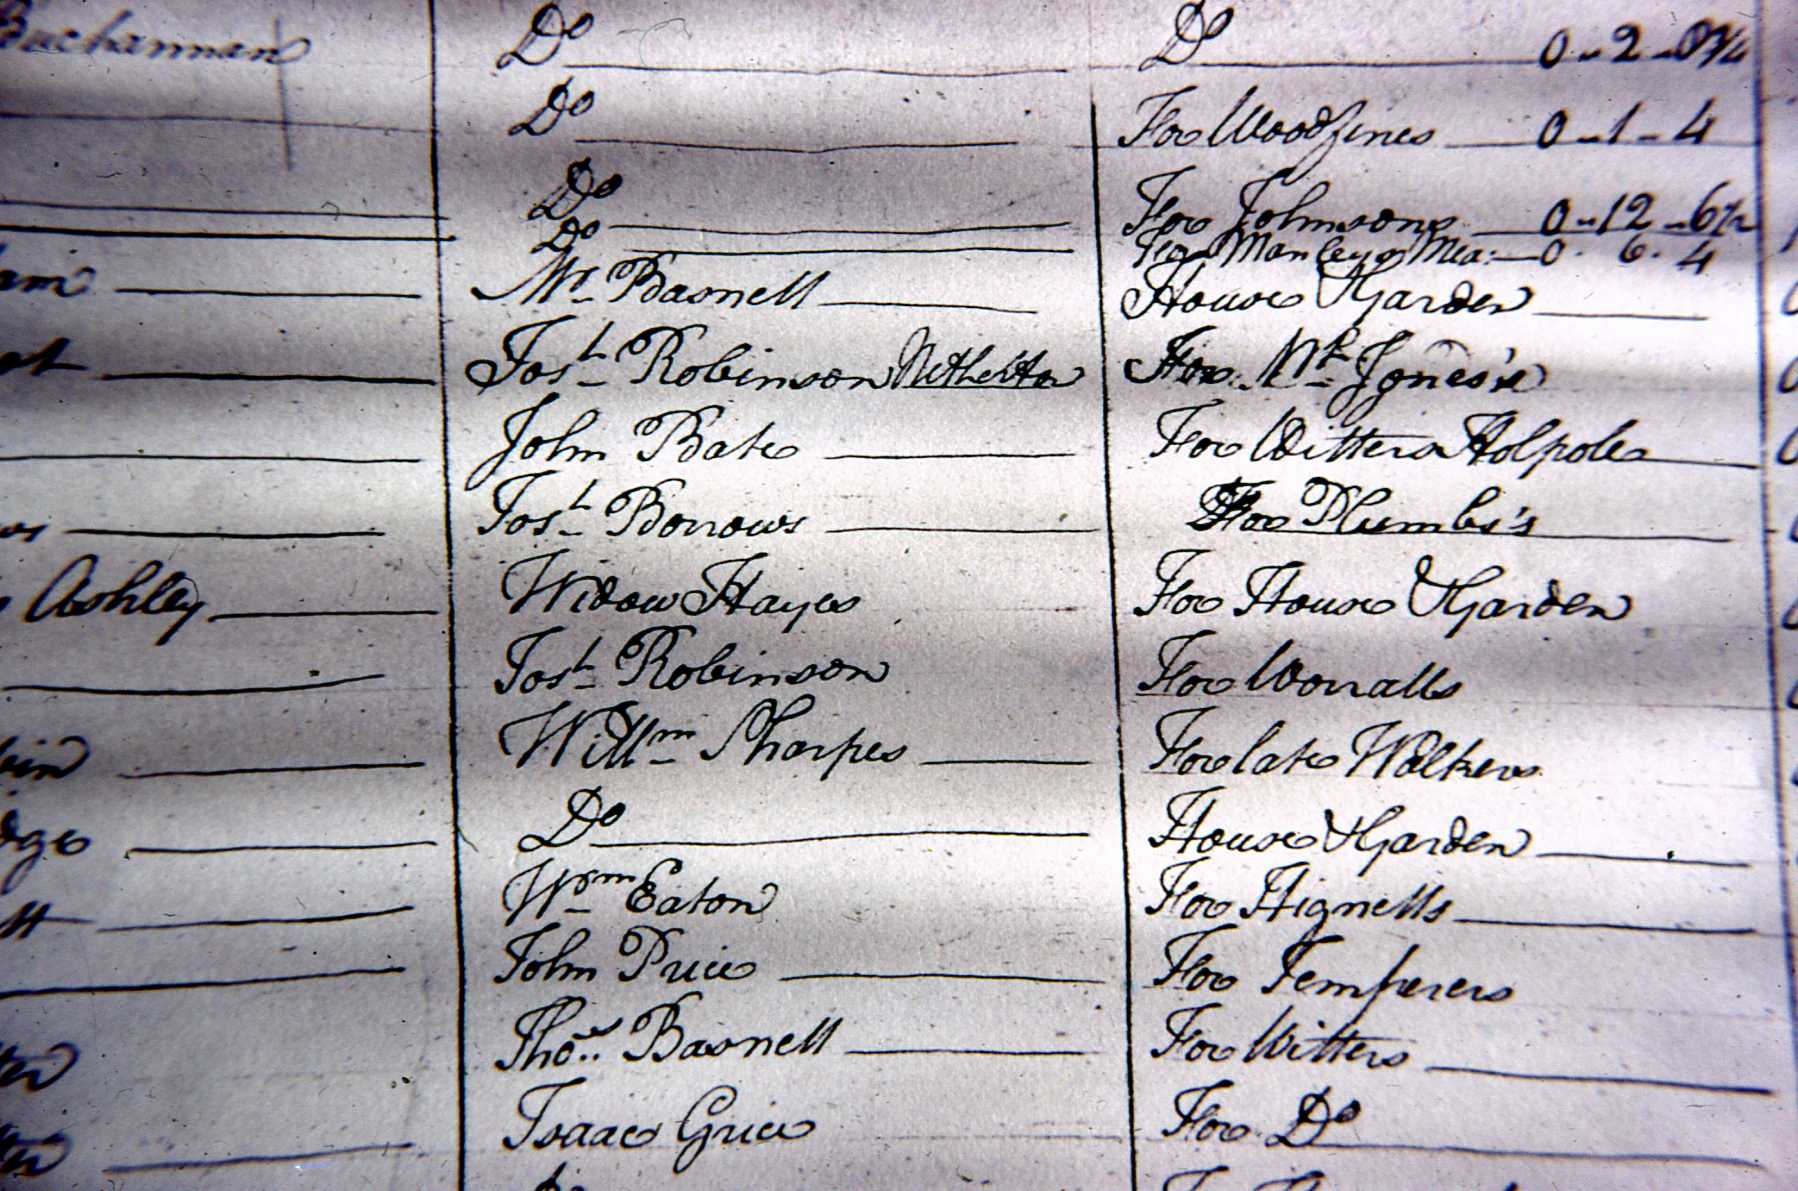 Buchannan Do Do 0 - 2 - 0¾
Do For Woodfines 0 - 1 - 4
Do For Johnsons 0 - 12 - 6½
Do For Manleys Mea: 0 . 6 . 4
Mr Basnett House & Garden
Josh Robinson Netherton For Mr Jones's
John Bate For Witters Holpole
Josh Borrows For Plumbs's
Ashley Widow Hayes For House & Garden
Josh Robinson For Worralls
Willm Sharpes For late Walkers
Do House & Garden
Wm Eaton For Hignetts
John Price For Temperers
Thos. Basnett For Witters
Isaac Grice For Do